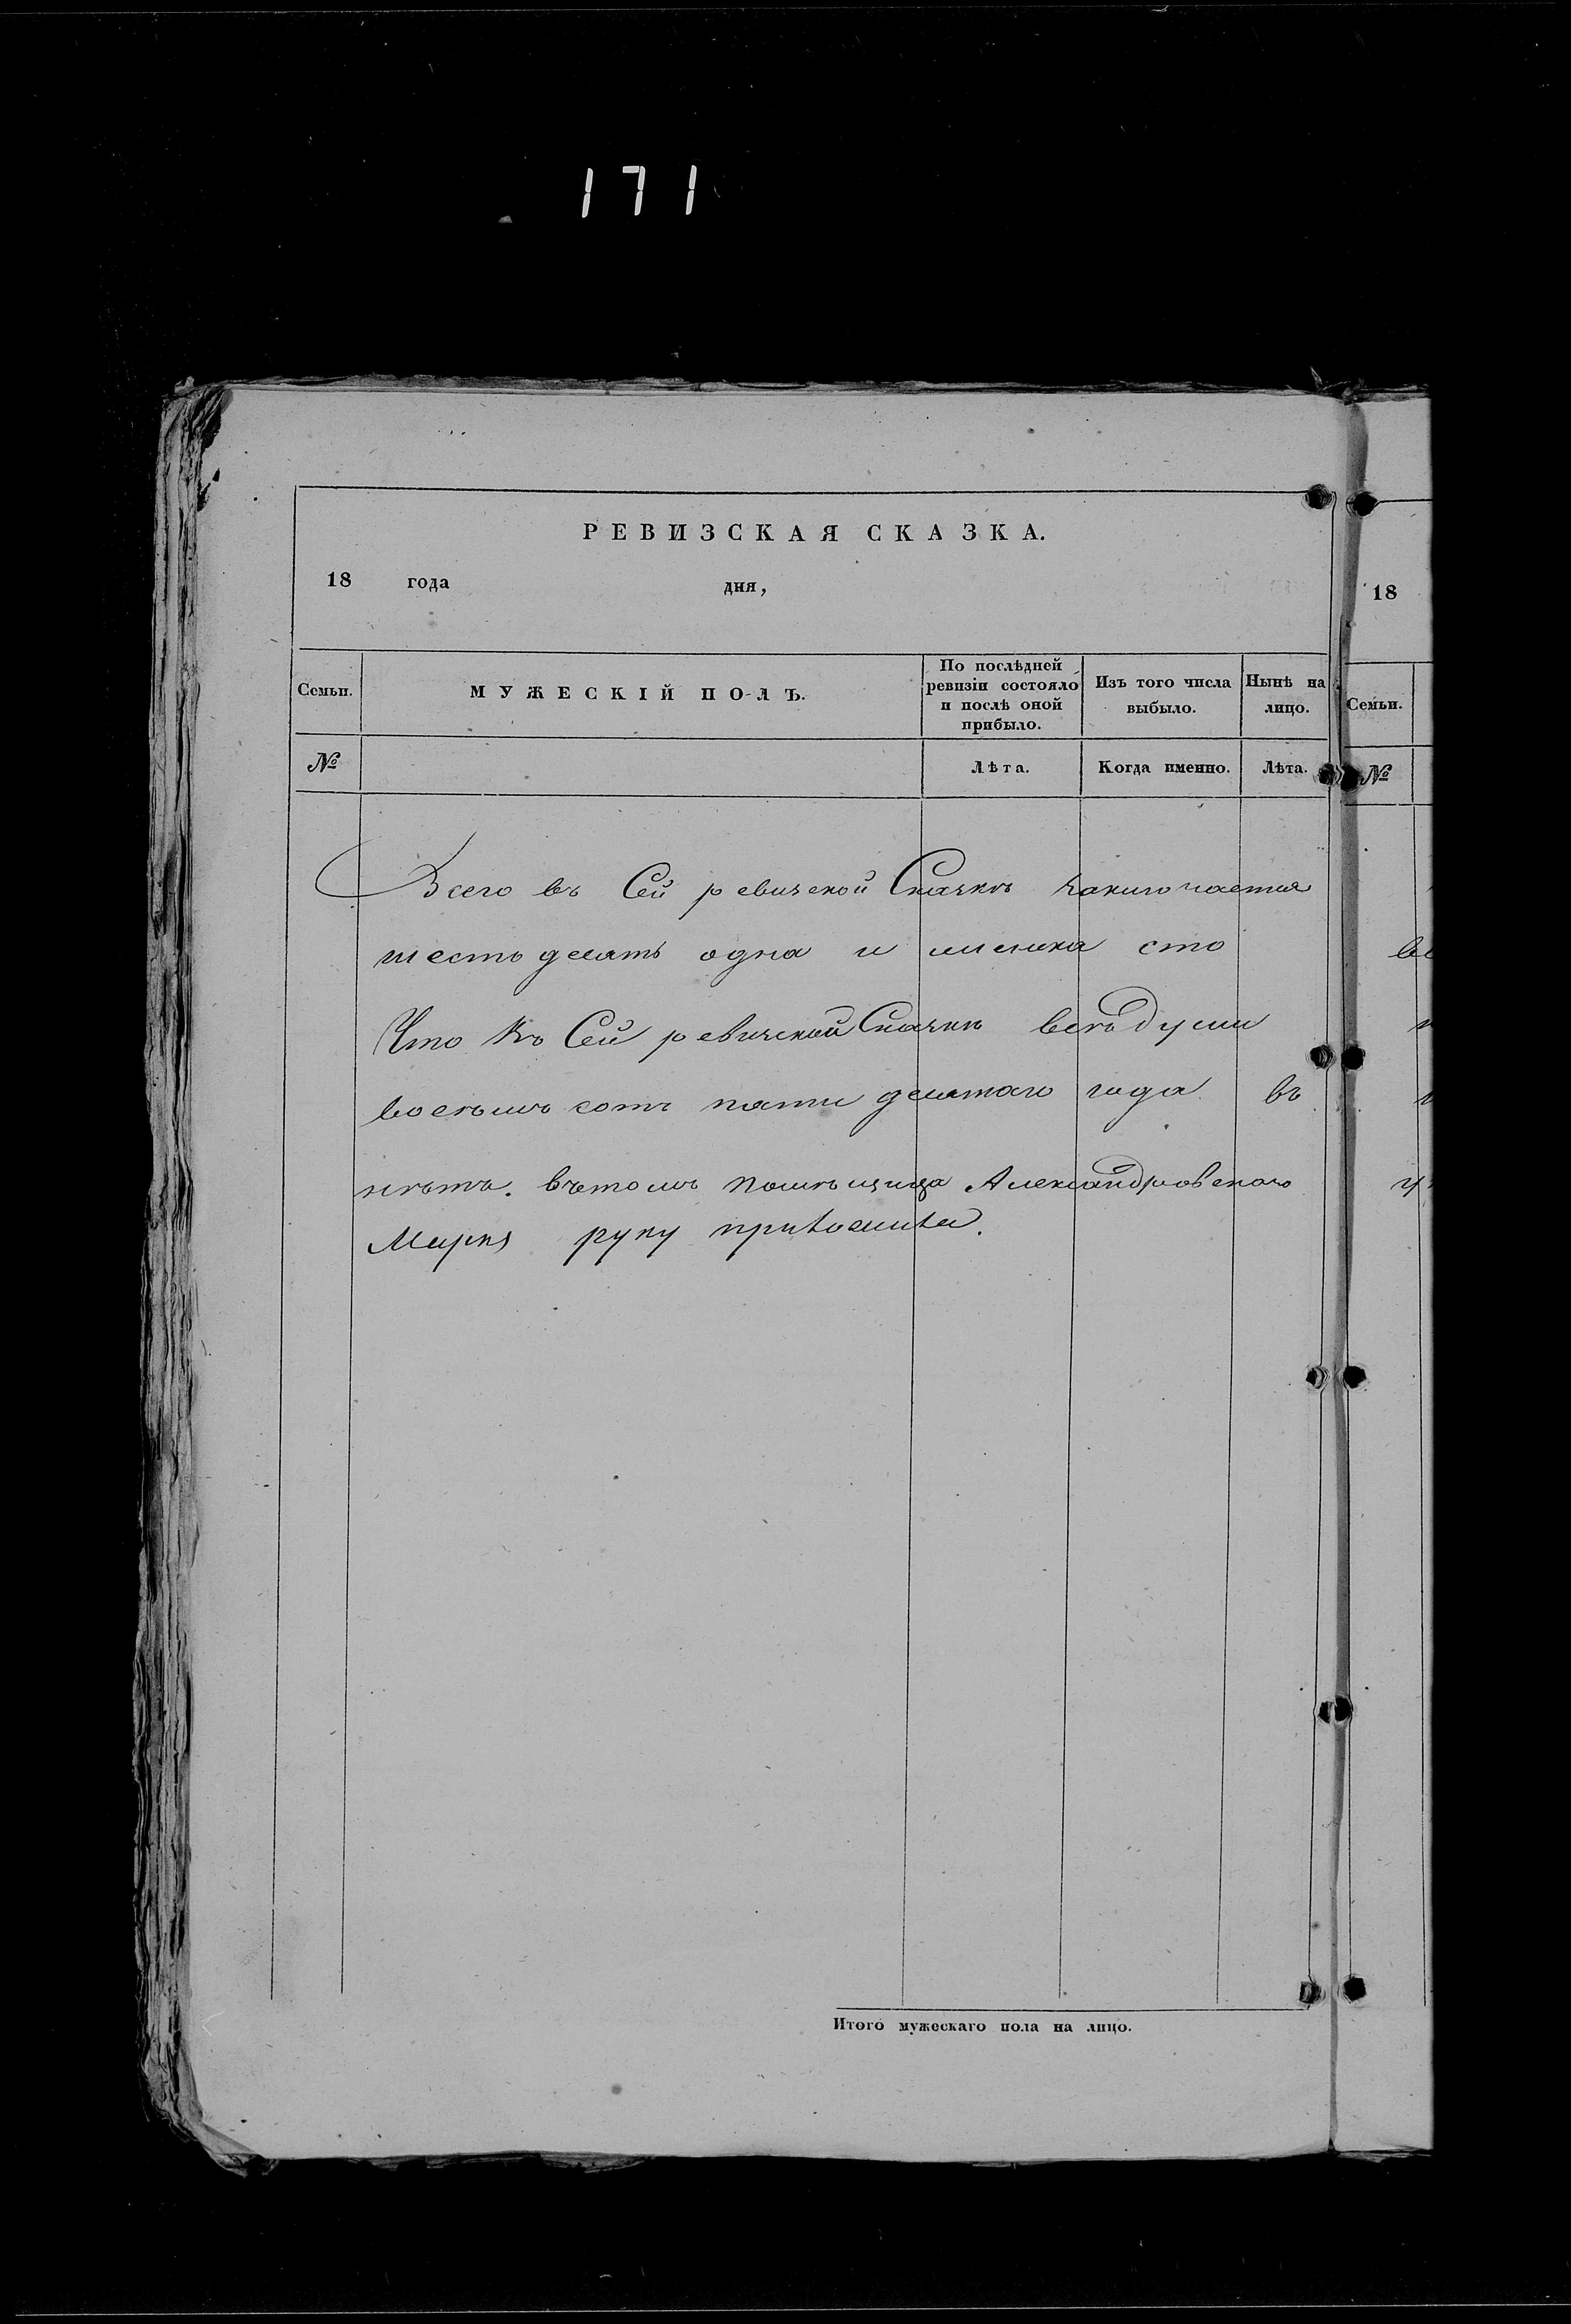 171
РЕВИЗСКАЯ СКАЗКА.
18 года дня,
Семьи.
МУЖЕСКІЙ ПОЛЪ.
По послѣдней ревизіи состояло и послѣ оной прибыло.
Изъ того числа выбыло.
Нынѣ на лицо.
№
Лѣта.
Когда именно.
Лѣта.
Всего въ Сей ревизской Сказкѣ заключается
шестьдесятъ одна и сто
Что въ Сей ревизской Сказкѣ всѣ души
восемь сотъ пятидесятаго года въ
нѣтъ. вътомъ помѣщица Александровскаго
руку приложила.
Итого мужескаго пола на лицо.
18
Семьи.
№